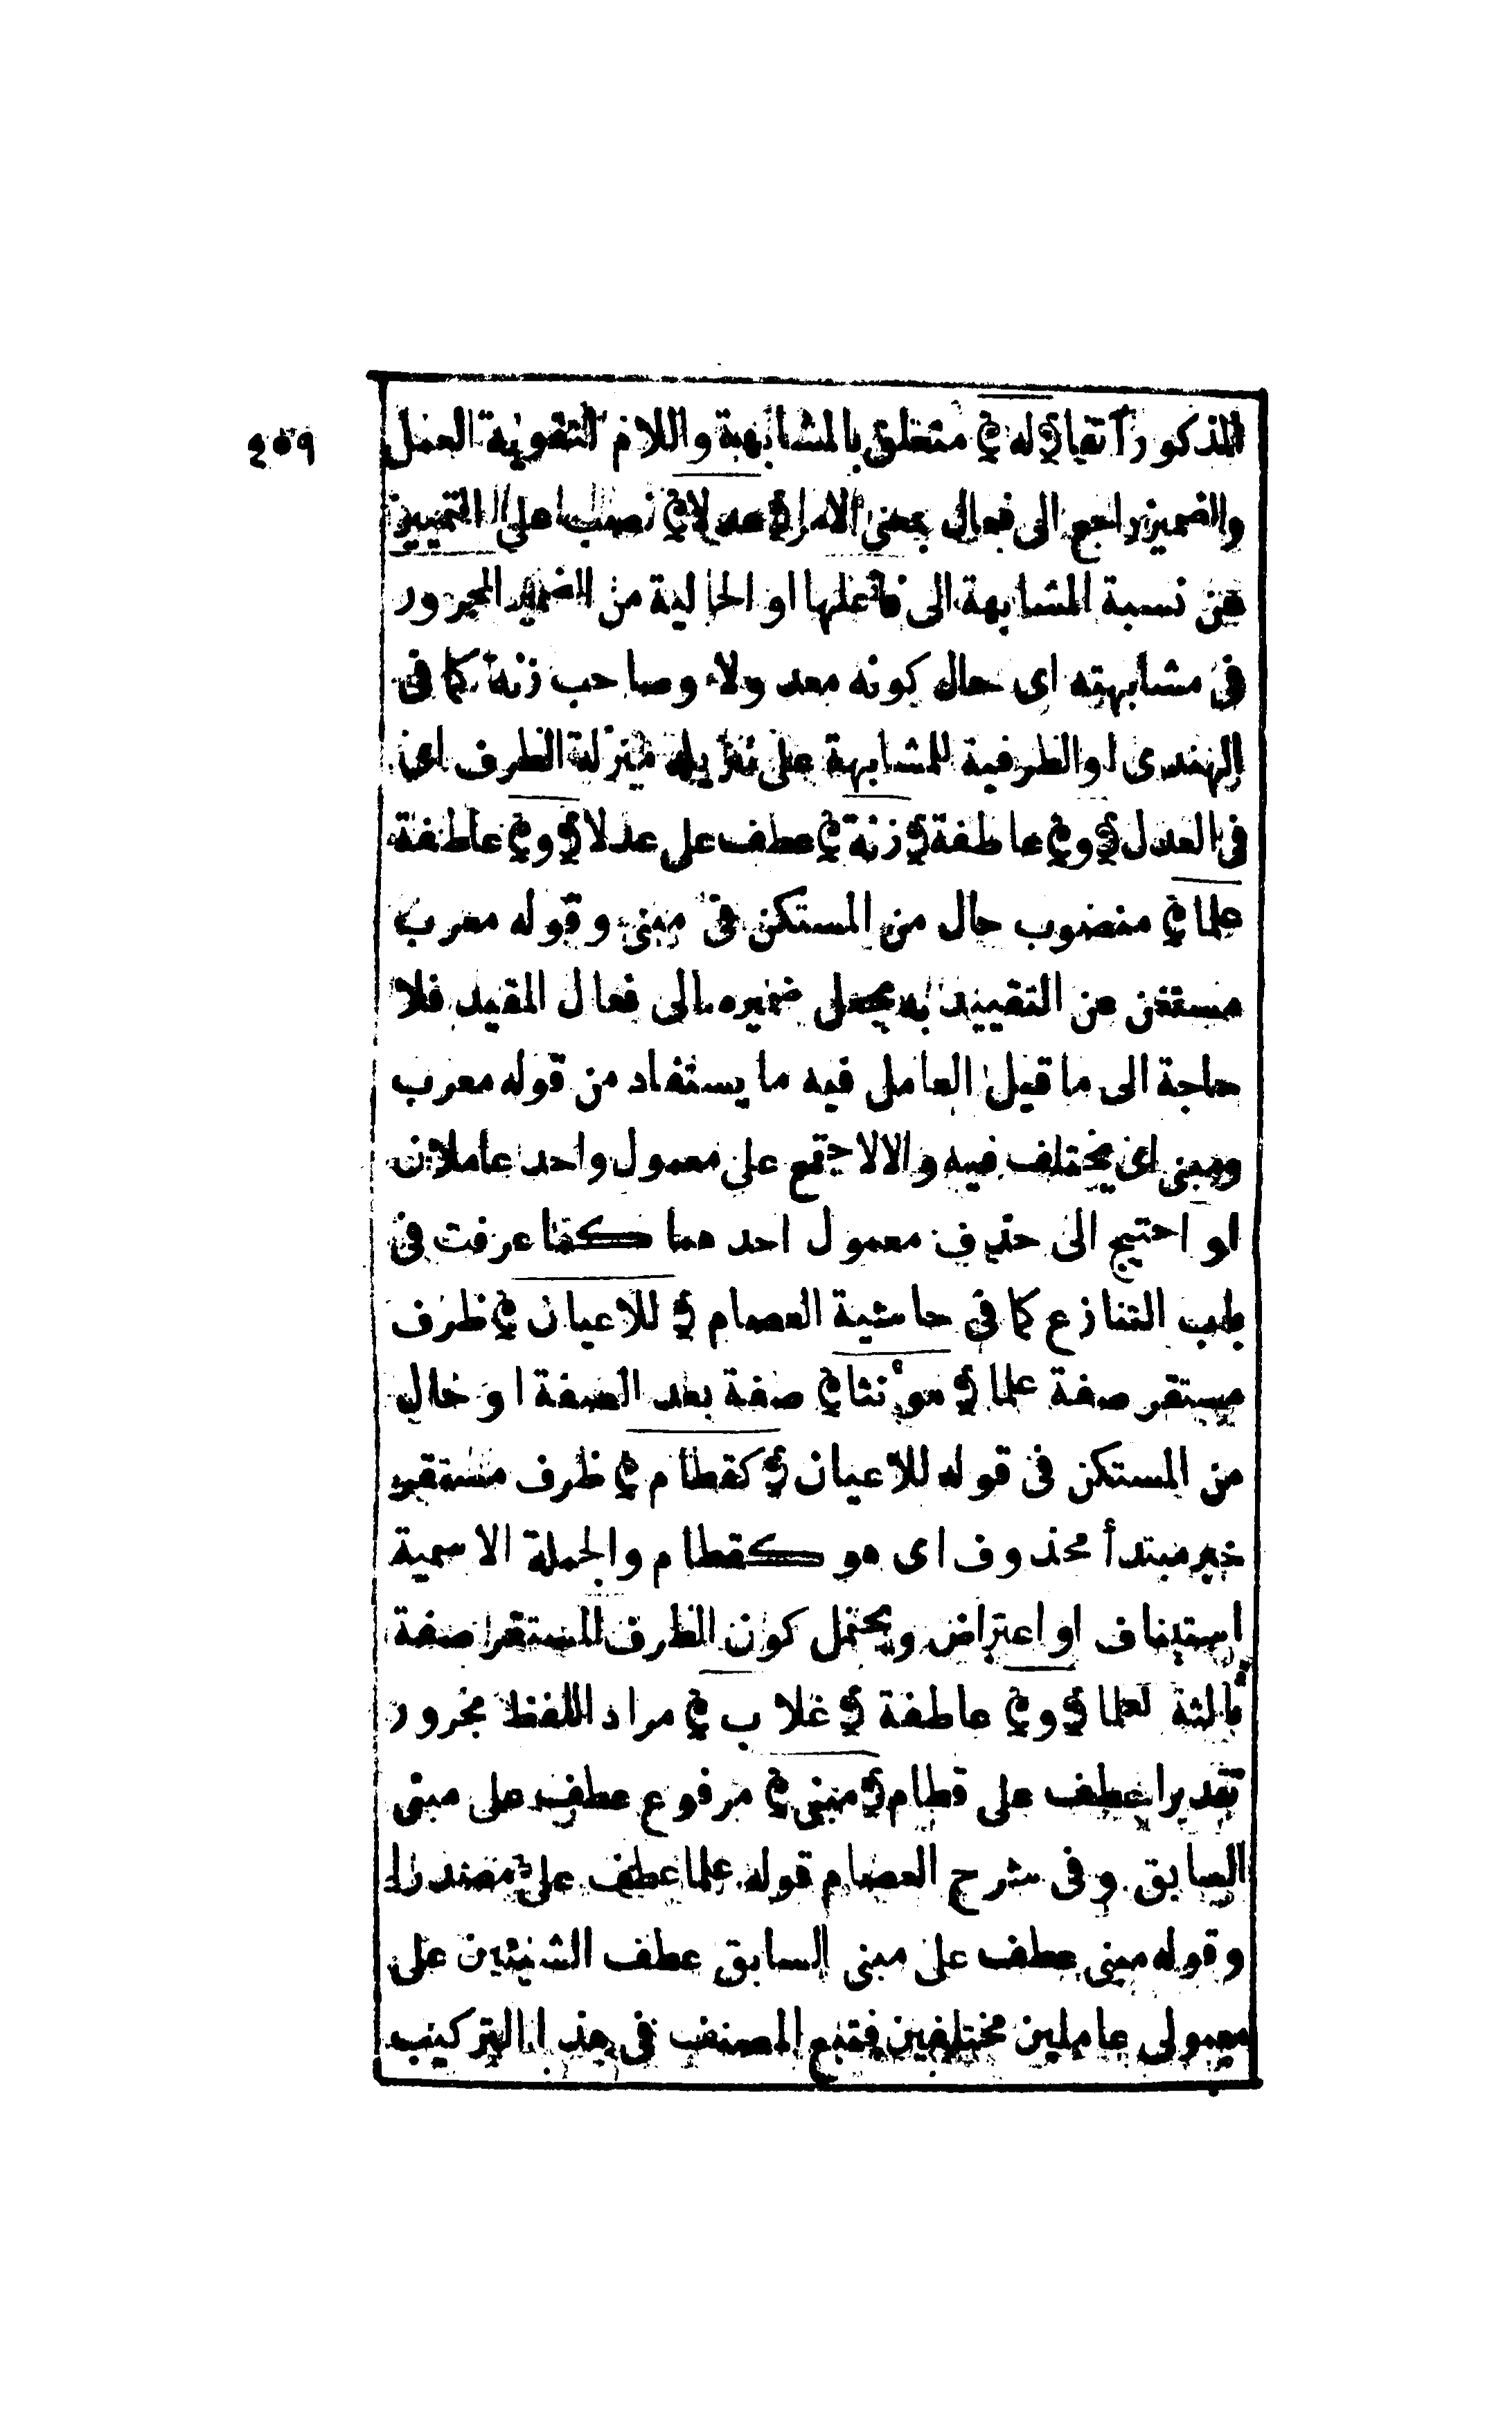 ٤٥٩
المذكور آنفا ﴿ له ﴾ متعلق بالمشابهة واللام لتقوية العمل
والضمير راجع الى فعال بمعنى الامر ﴿ عدلا ﴾ نصب على التمييز
عن نسبة المشابهة الى فاعلها او الحالية من الضمير المجرور
فى مشابهته اى حال كونه معدولا وصاحب زنة كما فى
الهندى او الظرفية للمشابهة على تنزيله منزلة الظرف اى
فى العدل ﴿ و ﴾ عاطفة ﴿ زنة ﴾ عطف على عدلا ﴿ و ﴾ عاطفة
علما ﴾ منصوب حال من المستكن فى مبنى وقوله معرب
مستغن عن التقييد به بجعل ضميره الى فعال المقيد فلا
حاجة الى ما قيل العامل فيه ما يستفاد من قوله معرب
ومبنى اى يختلف فيه والا لاجتمع على معمول واحد عاملان
او احتيج الى حذف معمول احدهما كما عرفت فى
باب التنازع كما فى حاشية العصام ﴿ للاعيان ﴾ ظرف
مستقر صفة علما ﴿ مؤنثا ﴾ صفة بعد الصفة او حال
من المستكن فى قوله للاعيان ﴿ كقطام ﴾ ظرف مستقر
خبر مبتدأ محذوف اى هو كقطام والجملة الاسمية
استيناف او اعتراض ويحتمل كون الظرف المستقر صفة
ثالثة لعلما ﴿ و ﴾ عاطفة ﴿ غلاب ﴾ مراد اللفظ مجرور
تقديرا عطف على قطام ﴿ مبنى ﴾ مرفوع عطف على مبنى
السابق وفى شرح العصام قوله علما عطف على مصدرا
وقوله مبنى عطف على مبنى السابق عطف الشيئين على
معمولى عاملين مختلفين فتبع المصنف فى هذا التركيب